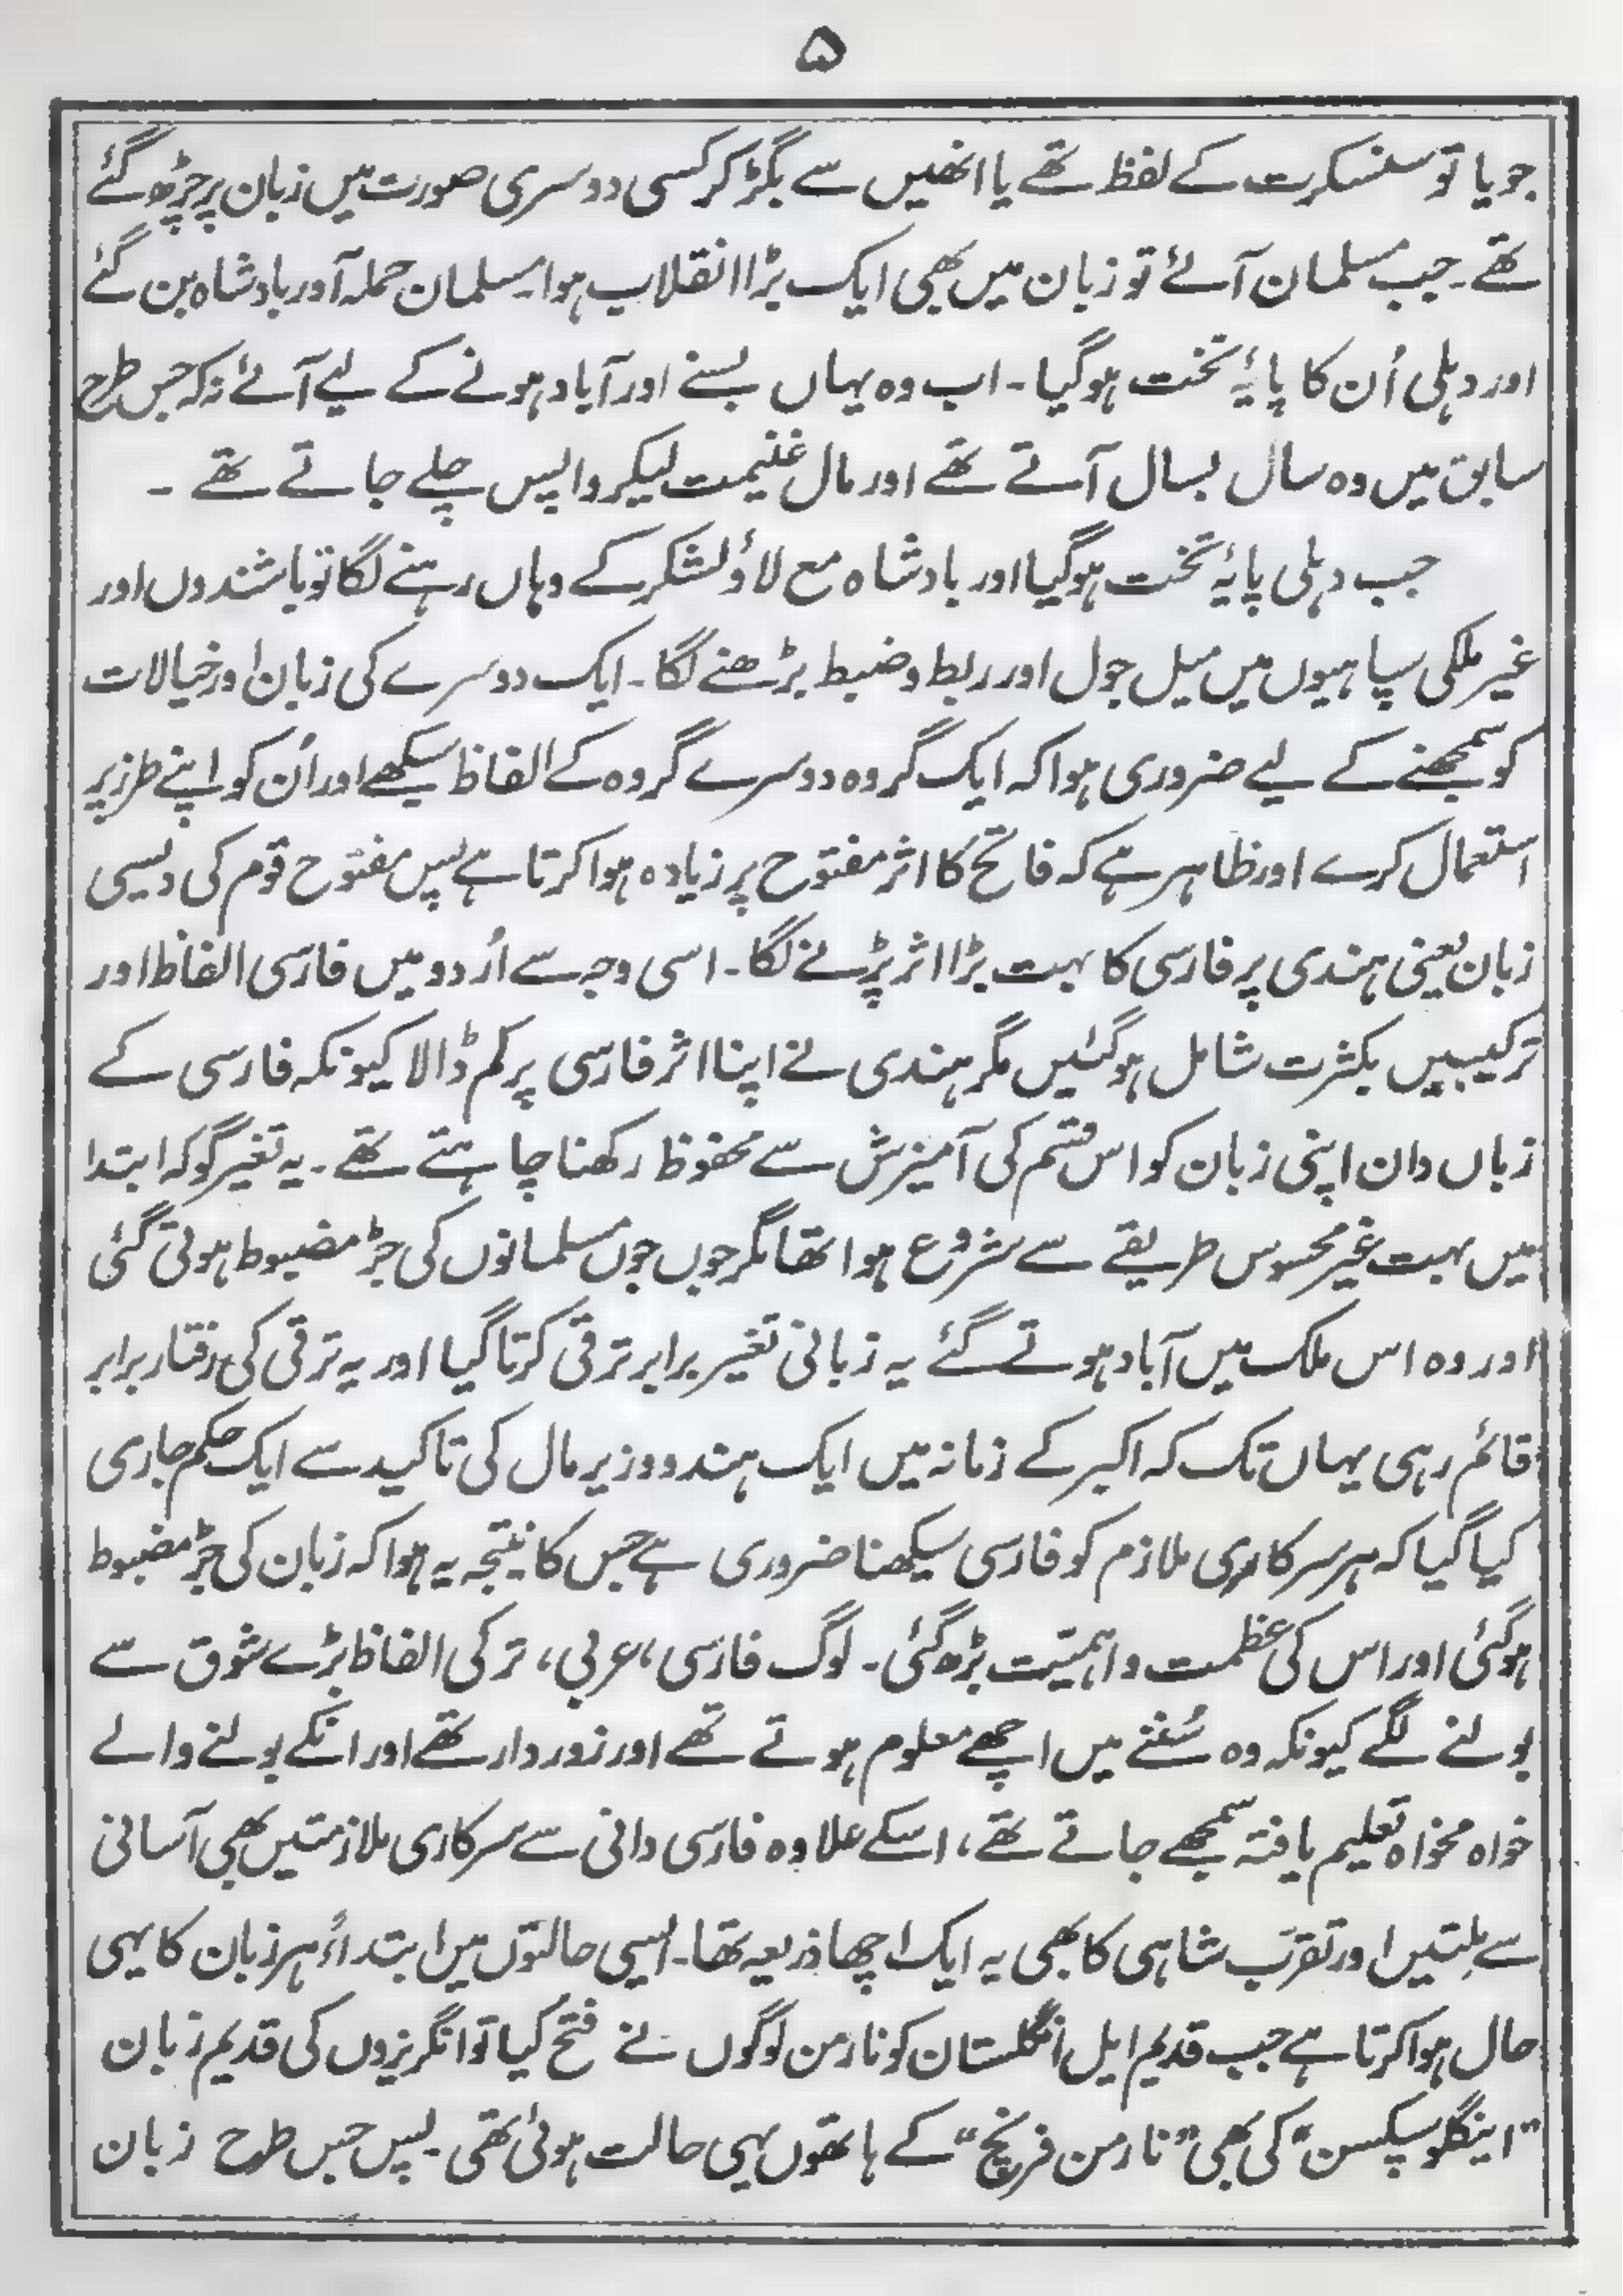 ۵
جو یا تو سنسکرت کے لفظ تھے یا انھیں سے بگڑ کر کسی دوسری صورت میں زبان پر چڑھ گئے
تھے۔ جب مسلمان آئے تو زبان میں بھی ایک بڑا انقلاب ہوا۔ مسلمان حملہ آور بادشاہ بن گئے
اور دہلی اُن کا پایۂ تخت ہوگیا۔ اب وہ یہاں بسنے اور آباد ہونے کے لیے آئے نہ کہ جس طرح
سابق میں وہ سال بسال آتے تھے اور مال غنیمت لیکر واپس چلے جاتے تھے ۔
جب دہلی پایۂ تخت ہوگیا اور بادشاہ مع لاؤ لشکر کے وہاں رہنے لگا تو باشندوں اور
غیر ملکی سپاہیوں میں میل جول اور ربط و ضبط بڑھنے لگا۔ ایک دوسرے کی زبان اور خیالات
کو سمجھنے کے لیے ضروری ہوا کہ ایک گروہ دوسرے گروہ کے الفاظ سیکھے اور اُن کو اپنے طرز پر
استعمال کرے اور ظاہر ہے کہ فاتح کا اثر مفتوح پر زیادہ ہوا کرتا ہے پس مفتوح قوم کی دیسی
زبان یعنی ہندی پر فارسی کا بہت بڑا اثر پڑنے لگا۔ اسی وجہ سے اُردو میں فارسی الفاظ اور
ترکیبیں بکثرت شامل ہوگئیں مگر ہندی نے اپنا اثر فارسی پر کم ڈالا کیونکہ فارسی کے
زباں دان اپنی زبان کو اس قسم کی آمیزش سے محفوظ رکھنا چاہتے تھے۔ یہ تغیر گو کہ ابتدا
میں بہت غیر محسوس طریقے سے شروع ہوا تھا مگر جوں جوں مسلمانوں کی جڑ مضبوط ہوتی گئی
اور وہ اس ملک میں آباد ہوتے گئے یہ زبانی تغیر برابر ترقی کرتا گیا اور یہ ترقی کی رفتار برابر
قائم رہی یہاں تک کہ اکبر کے زمانہ میں ایک ہندو وزیر مال کی تاکید سے ایک حکم جاری
کیا گیا کہ ہر سرکاری ملازم کو فارسی سیکھنا ضروری ہے جس کا نتیجہ یہ ہوا کہ زبان کی جڑ مضبوط
ہوگئی اور اس کی عظمت و اہمیّت بڑھ گئی۔ لوگ فارسی، عربی، ترکی الفاظ بڑے شوق سے
بولنے لگے کیونکہ وہ سُننے میں اچھے معلوم ہوتے تھے اور زور دار تھے اور انکے بولنے والے
خواہ مخواہ تعلیم یافتہ سمجھے جاتے تھے، اسکے علاوہ فارسی دانی سے سرکاری ملازمتیں بھی آسانی
سے مِلتیں اور تقرّب شاہی کا بھی یہ ایک اچھا ذریعہ تھا۔ ایسی حالتوں میں ابتداءً ہر زبان کا یہی
حال ہوا کرتا ہے جب قدیم اہل انگلستان کو نارمن لوگوں نے فتح کیا تو انگریزوں کی قدیم زبان
"اینگلو سیکسن" کی بھی "نارمن فرینچ" کے ہاتھوں یہی حالت ہوئی تھی۔ پس جس طرح زبان